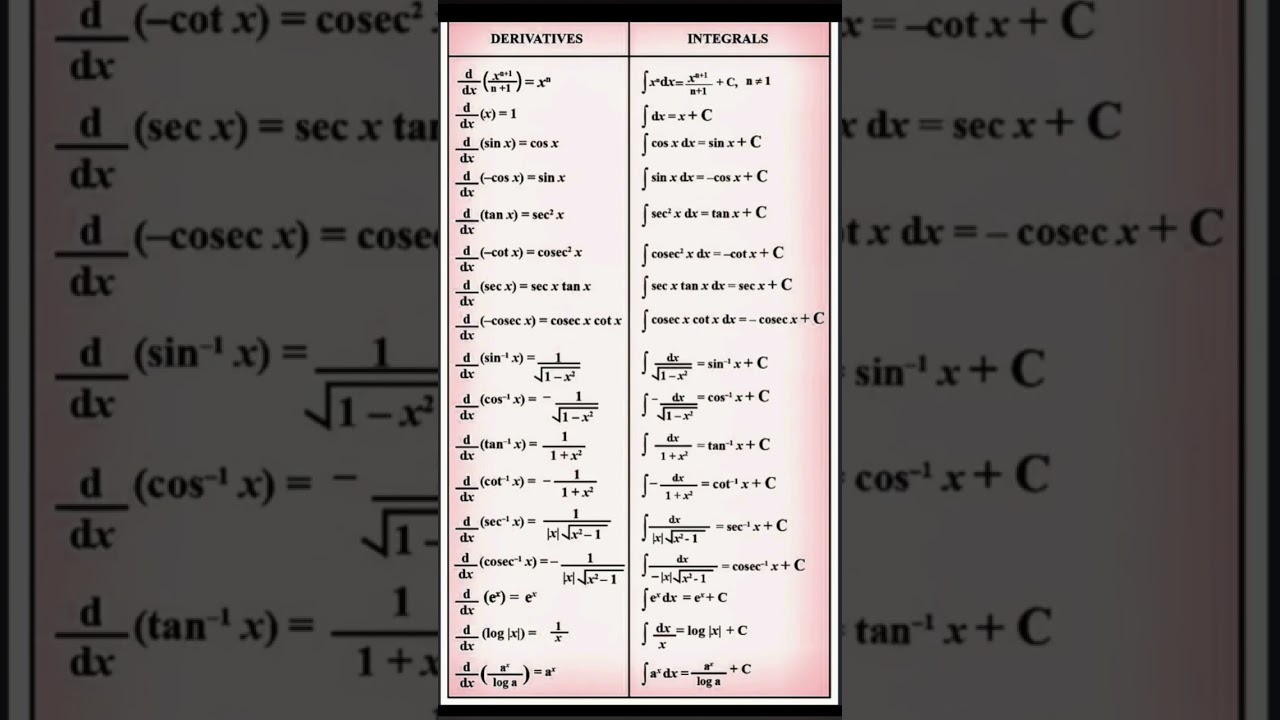 DERIVATIVES INTEGRALS
d/dx (xⁿ⁺¹/n+1) = xⁿ ∫xⁿdx= xⁿ⁺¹/n+1 + C, n ≠ 1
d/dx (x) = 1 ∫ dx = x + C
d/dx (sin x) = cos x ∫ cos x dx = sin x + C
d/dx (–cos x) = sin x ∫ sin x dx = –cos x + C
d/dx (tan x) = sec² x ∫ sec² x dx = tan x + C
d/dx (–cot x) = cosec² x ∫ cosec² x dx = –cot x + C
d/dx (sec x) = sec x tan x ∫ sec x tan x dx = sec x + C
d/dx (–cosec x) = cosec x cot x ∫ cosec x cot x dx = – cosec x + C
d/dx (sin⁻¹ x) = 1/√1 – x² ∫ dx/√1 – x² = sin⁻¹ x + C
d/dx (cos⁻¹ x) = – 1/√1 – x² ∫ – dx/√1 – x² = cos⁻¹ x + C
d/dx (tan⁻¹ x) = 1/1 + x² ∫ dx/1 + x² = tan⁻¹ x + C
d/dx (cot⁻¹ x) = – 1/1 + x² ∫ – dx/1 + x² = cot⁻¹ x + C
d/dx (sec⁻¹ x) = 1/|x|√x² – 1 ∫ dx/|x|√x² - 1 = sec⁻¹ x + C
d/dx (cosec⁻¹ x) = – 1/|x|√x² – 1 ∫ dx/–|x|√x² - 1 = cosec⁻¹ x + C
d/dx (eˣ) = eˣ ∫ eˣ dx = eˣ + C
d/dx (log |x|) = 1/x ∫ dx/x = log |x| + C
d/dx (aˣ/log a) = aˣ ∫ aˣ dx = aˣ/log a + C